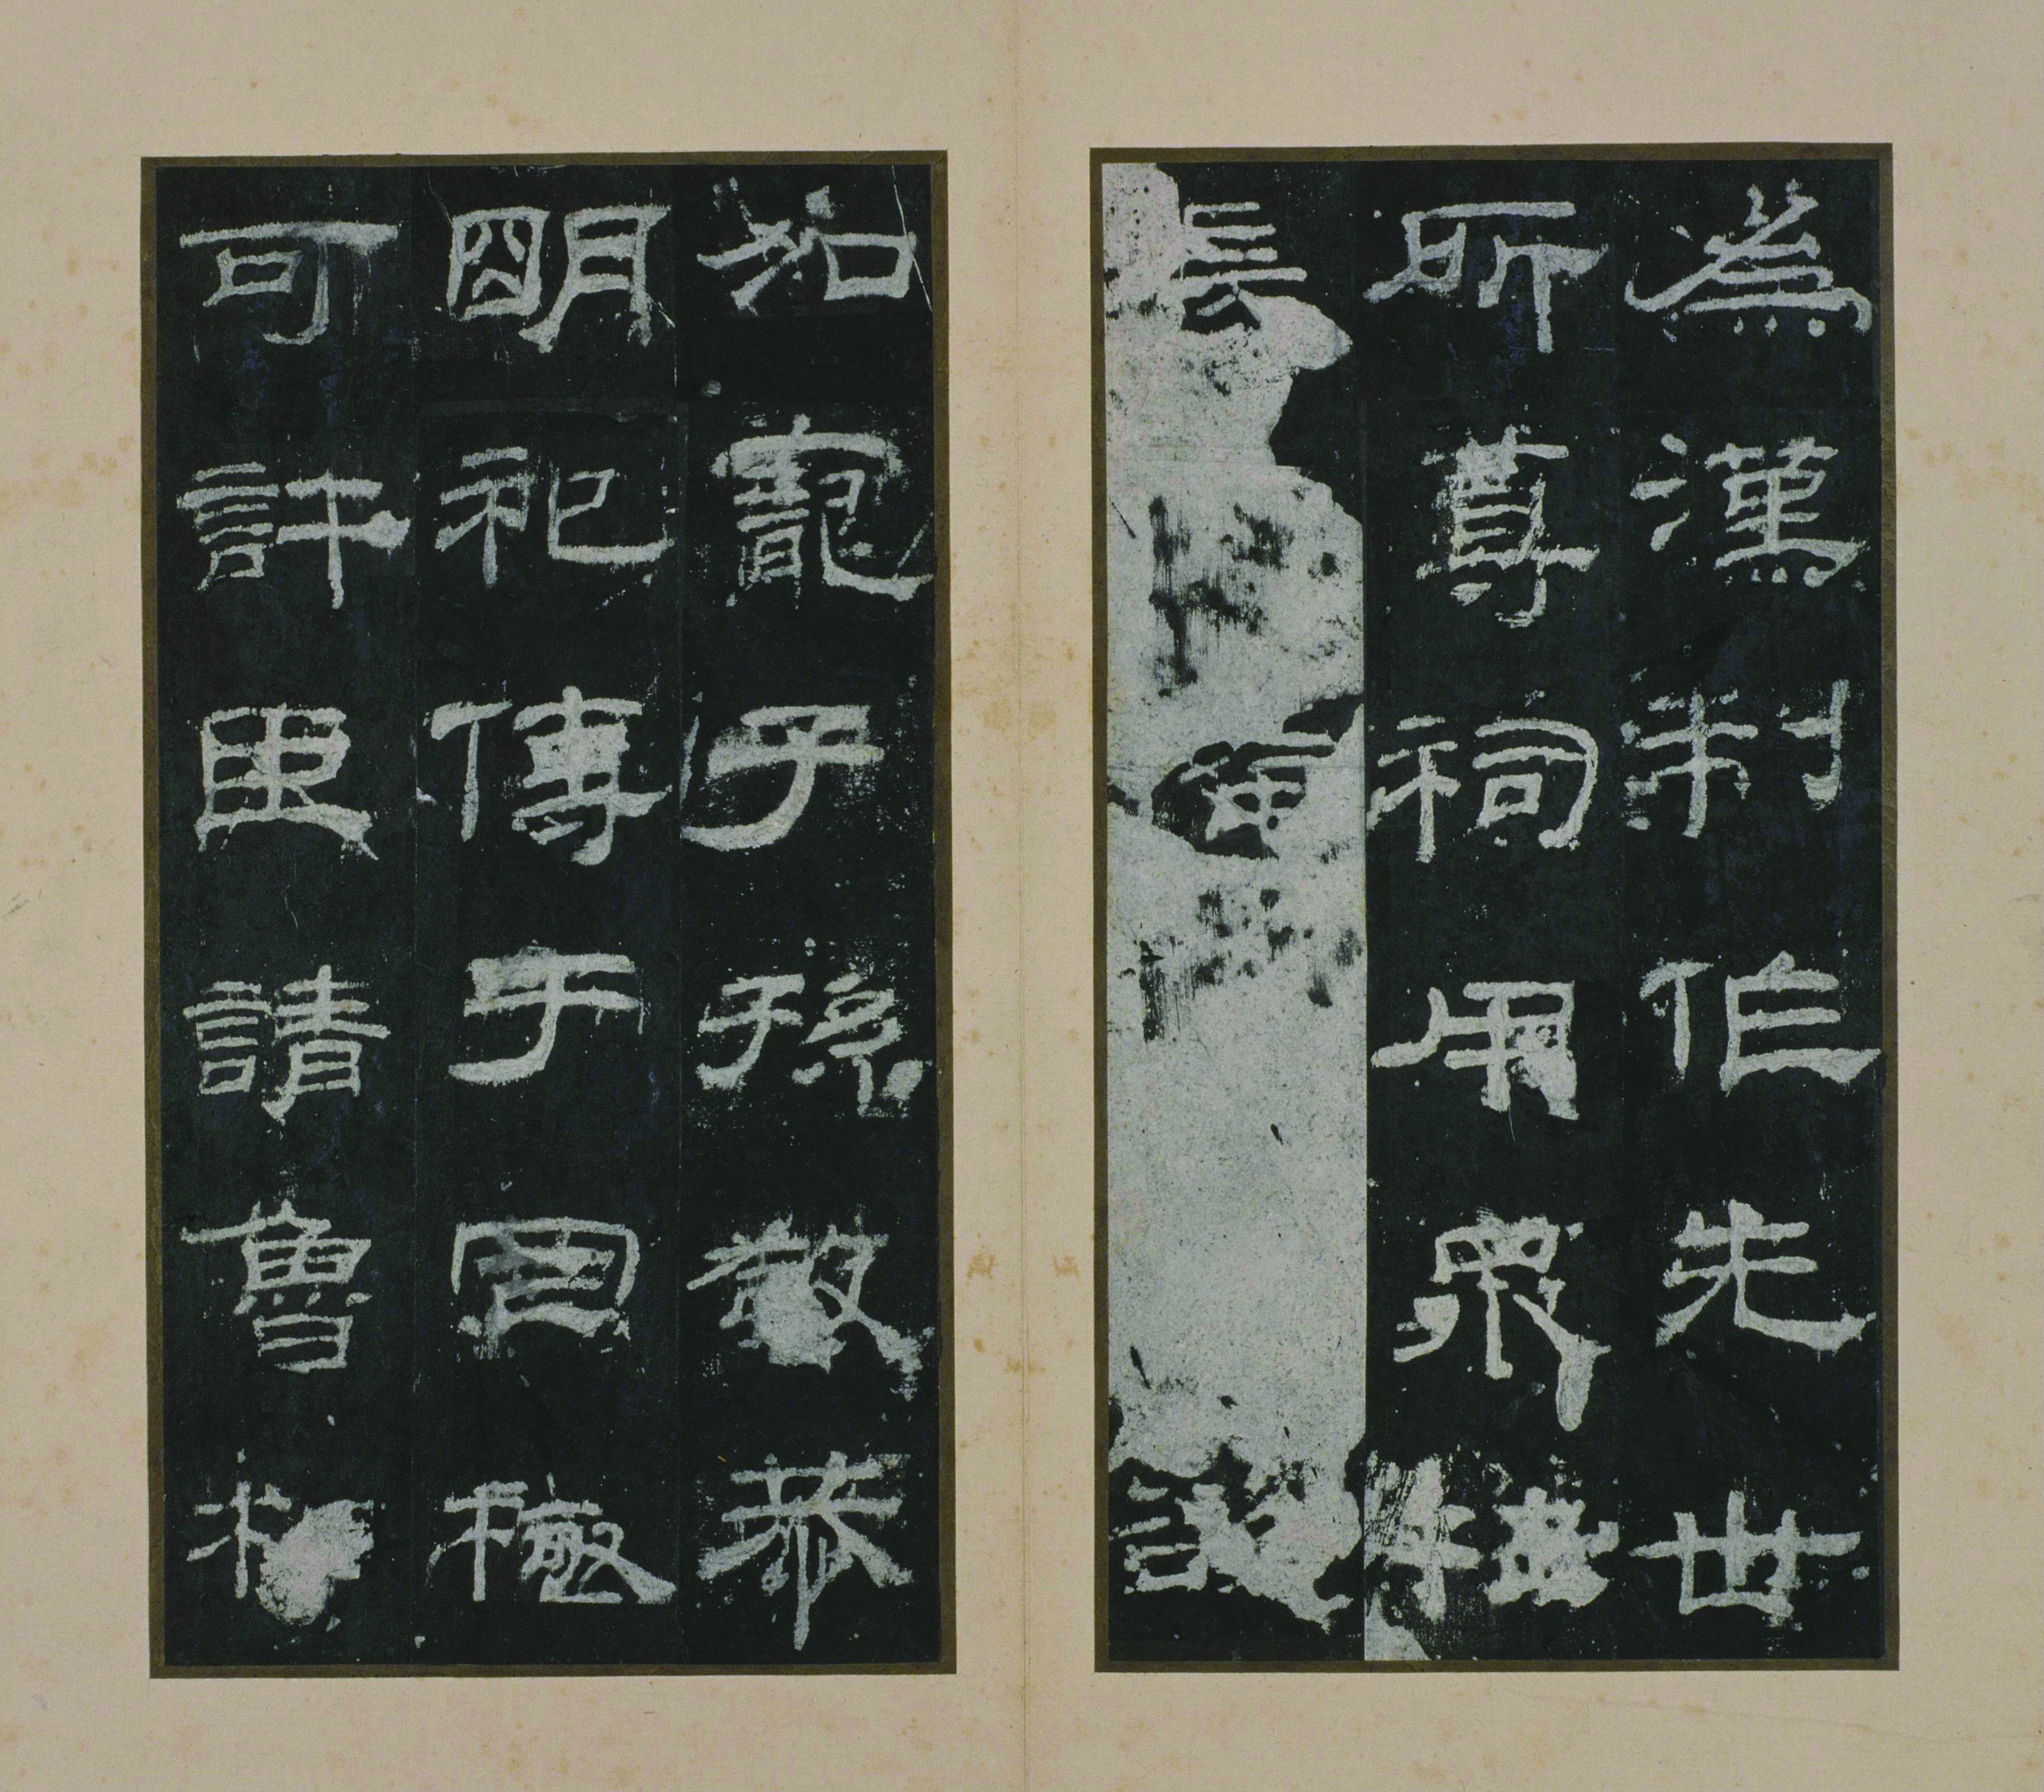 為漢制作先世
所尊祠用眾牲
長備
加寵子孫敬恭
明祀傳于罔極
可許臣請魯相